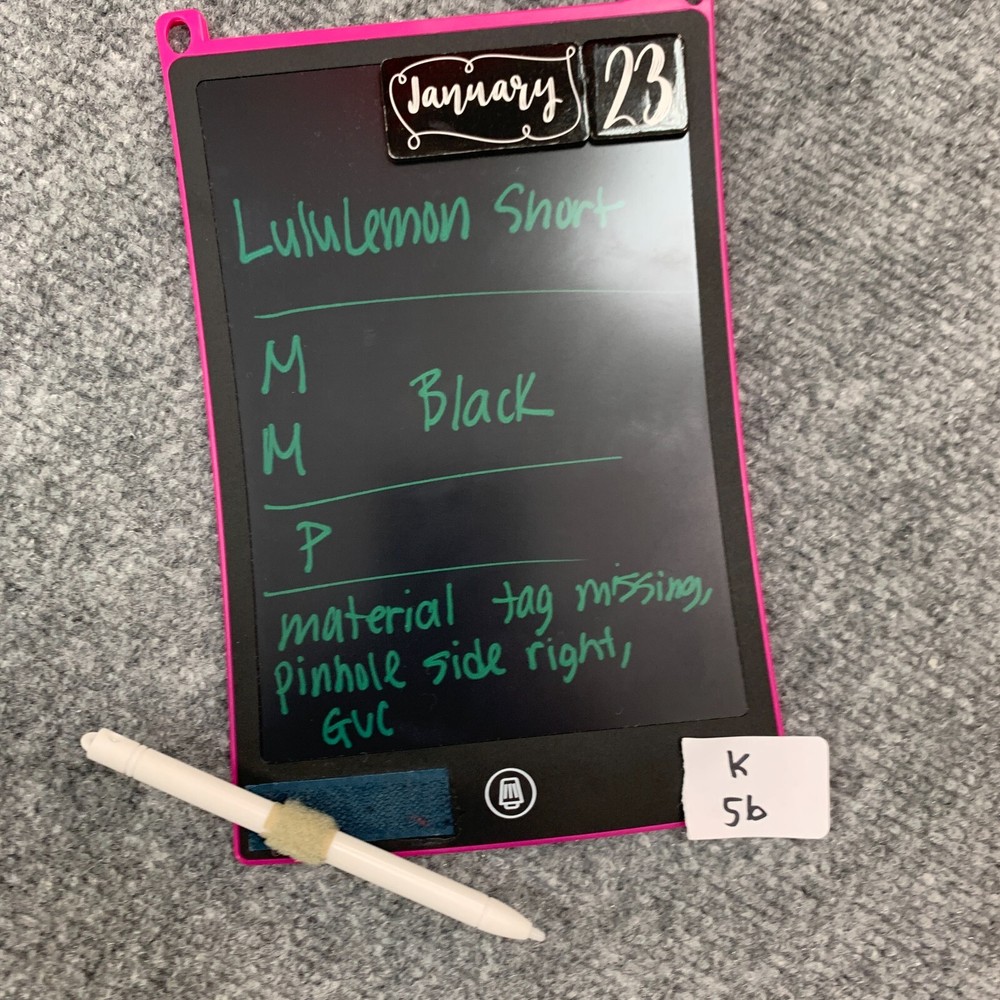 January 23
LuluLemon Short
M
Black
M
P
material tag missing,
pinhole side right,
GUC
K
5b